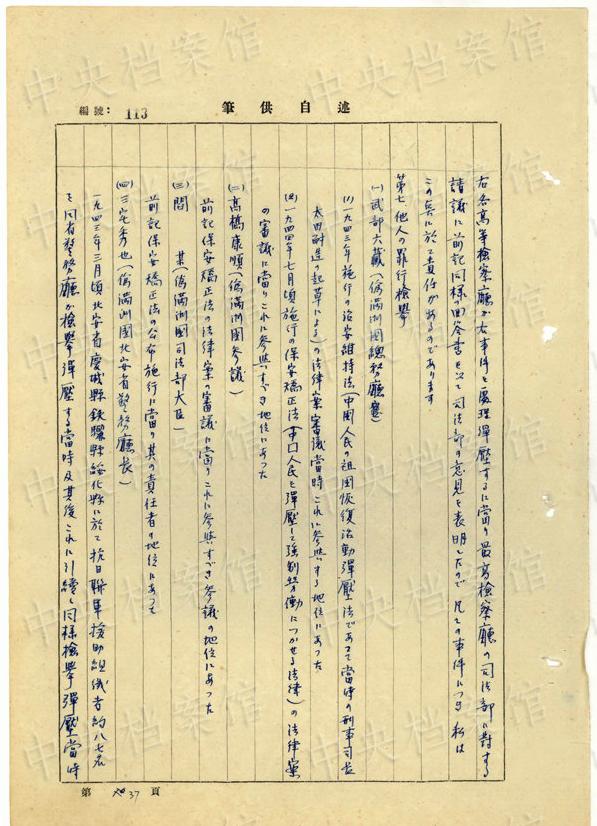 述自供筆
編號：113
右各高等檢察廳が右事件を處理彈壓するに當り最高檢察廳の司法部に對する
請議に前記同様回答書を以て司法部の意見を表明したので 凡ての事件につき私は
この点に於て責任があるのであります
第七、他人の罪行檢擧
(一) 武部六藏（偽滿洲國總務廳長）
(1) 一九四三年施行の治安維持法（中國人民の祖國恢復活動彈壓法であって當時の刑事司長
太田耐造の起草による）の法律案審議當時これに參與する地位にあった
(2) 一九四四年七月頃施行の保安矯正法（中口人民を彈壓して強制勞働につかせる法律）の法律案
の審議に當りこれに參與すべき地位にあった
(二) 高橋康順（偽滿洲國參議）
前記保安矯正法の法律案審議に當りこれに參與すべき參議の地位にあった
(三) 閻 某（偽滿洲國司法部大臣）
前記保安矯正法の公布施行に當り其の責任者の地位にあって
(四) 三宅秀也（偽滿洲國北安省警務廳長）
一九四三年三月頃北安省慶城縣鉄驪縣綏化縣に於て抗日聯軍援助組織者約八七名
を同省警務廳が檢擧彈壓する當時及其後これに引續く同様檢擧彈壓當時
第 37 頁
中央档案馆